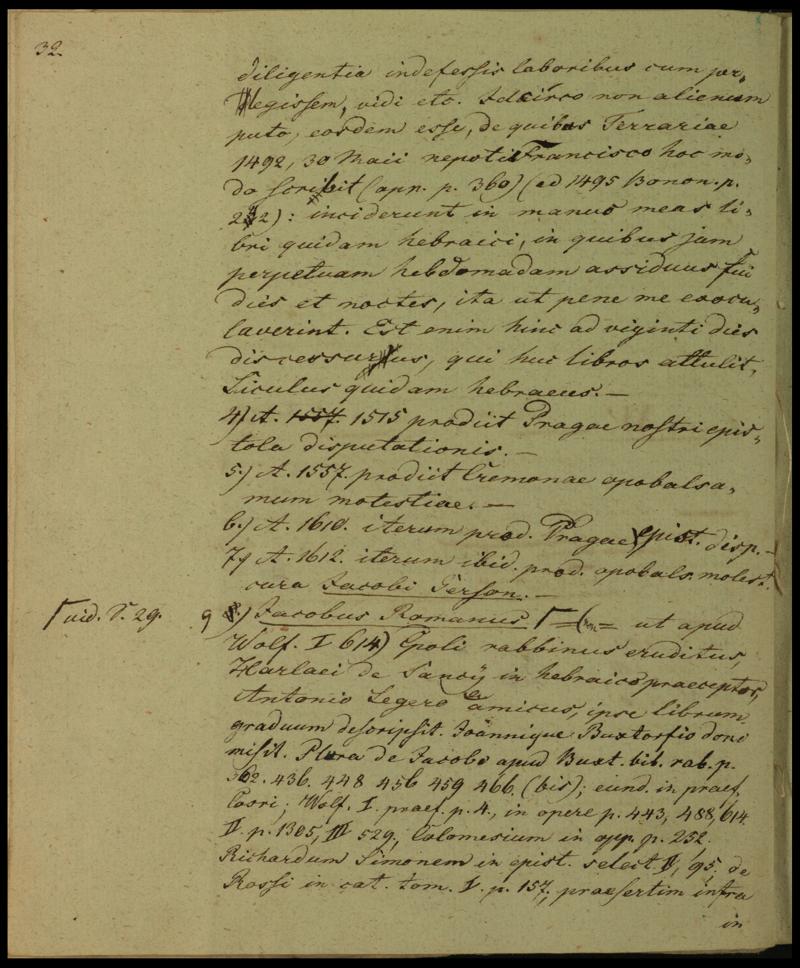 32.
diligentia indefessis laboribus cum per„
legissem, vidi etc. Idcirco non alienum
puto, eosdem esse, de quibus Ferrariae
1492, 30 Maii nepoti Francisco hoc mo„
do scribit (app. p. 360) (ed 1495 Bonon. p.
232): inciderunt in manus meas li„
bri quidam hebraici, in quibus jam
perpetuam hebdomadam assiduus fui
dies et noctes, ita ut pene me exocu„
laverint. Est enim hinc ad viginti dies
discessurus, qui huc libros attulit,
Siculus quidam hebraeus. —
4) A. 1557. 1515 prodiit Pragae nostri epis„
tola disputationis. —
5.) A. 1557. prodiit Cremonae apobalsa„
mum molestiae. —
6.) A. 1610. iterum prod. Pragae epist. disp. —
7.) A. 1612. iterum ibid. prod. apobals. molest.
cura Jacobi Gerson. —
vid. T. 29.
9 8.) Jacobus Romanus ut apud
Wolf. I 614) Cpoli rabbinus eruditus,
Harlaei de Sancÿ in hebraico praeceptor,
Antonio Legero amicus, ipse librum
graduum descripsit. Joannique Buxtorfio dono
misit. Plura de Jacobo apud Buxt. bib. rab. p.
362. 436. 448 456 459 466. (bis); eund. in praef.
Cosri; Wolf. I. praef. p. 4., in opere p. 443, 488, 614
II. p. 1305, III 529, Colomesium in opp. p. 252.
Richardum Simonem in epist. select. II, 95. de
Rossi in cat. tom. I. p. 157, praesertim infra
in